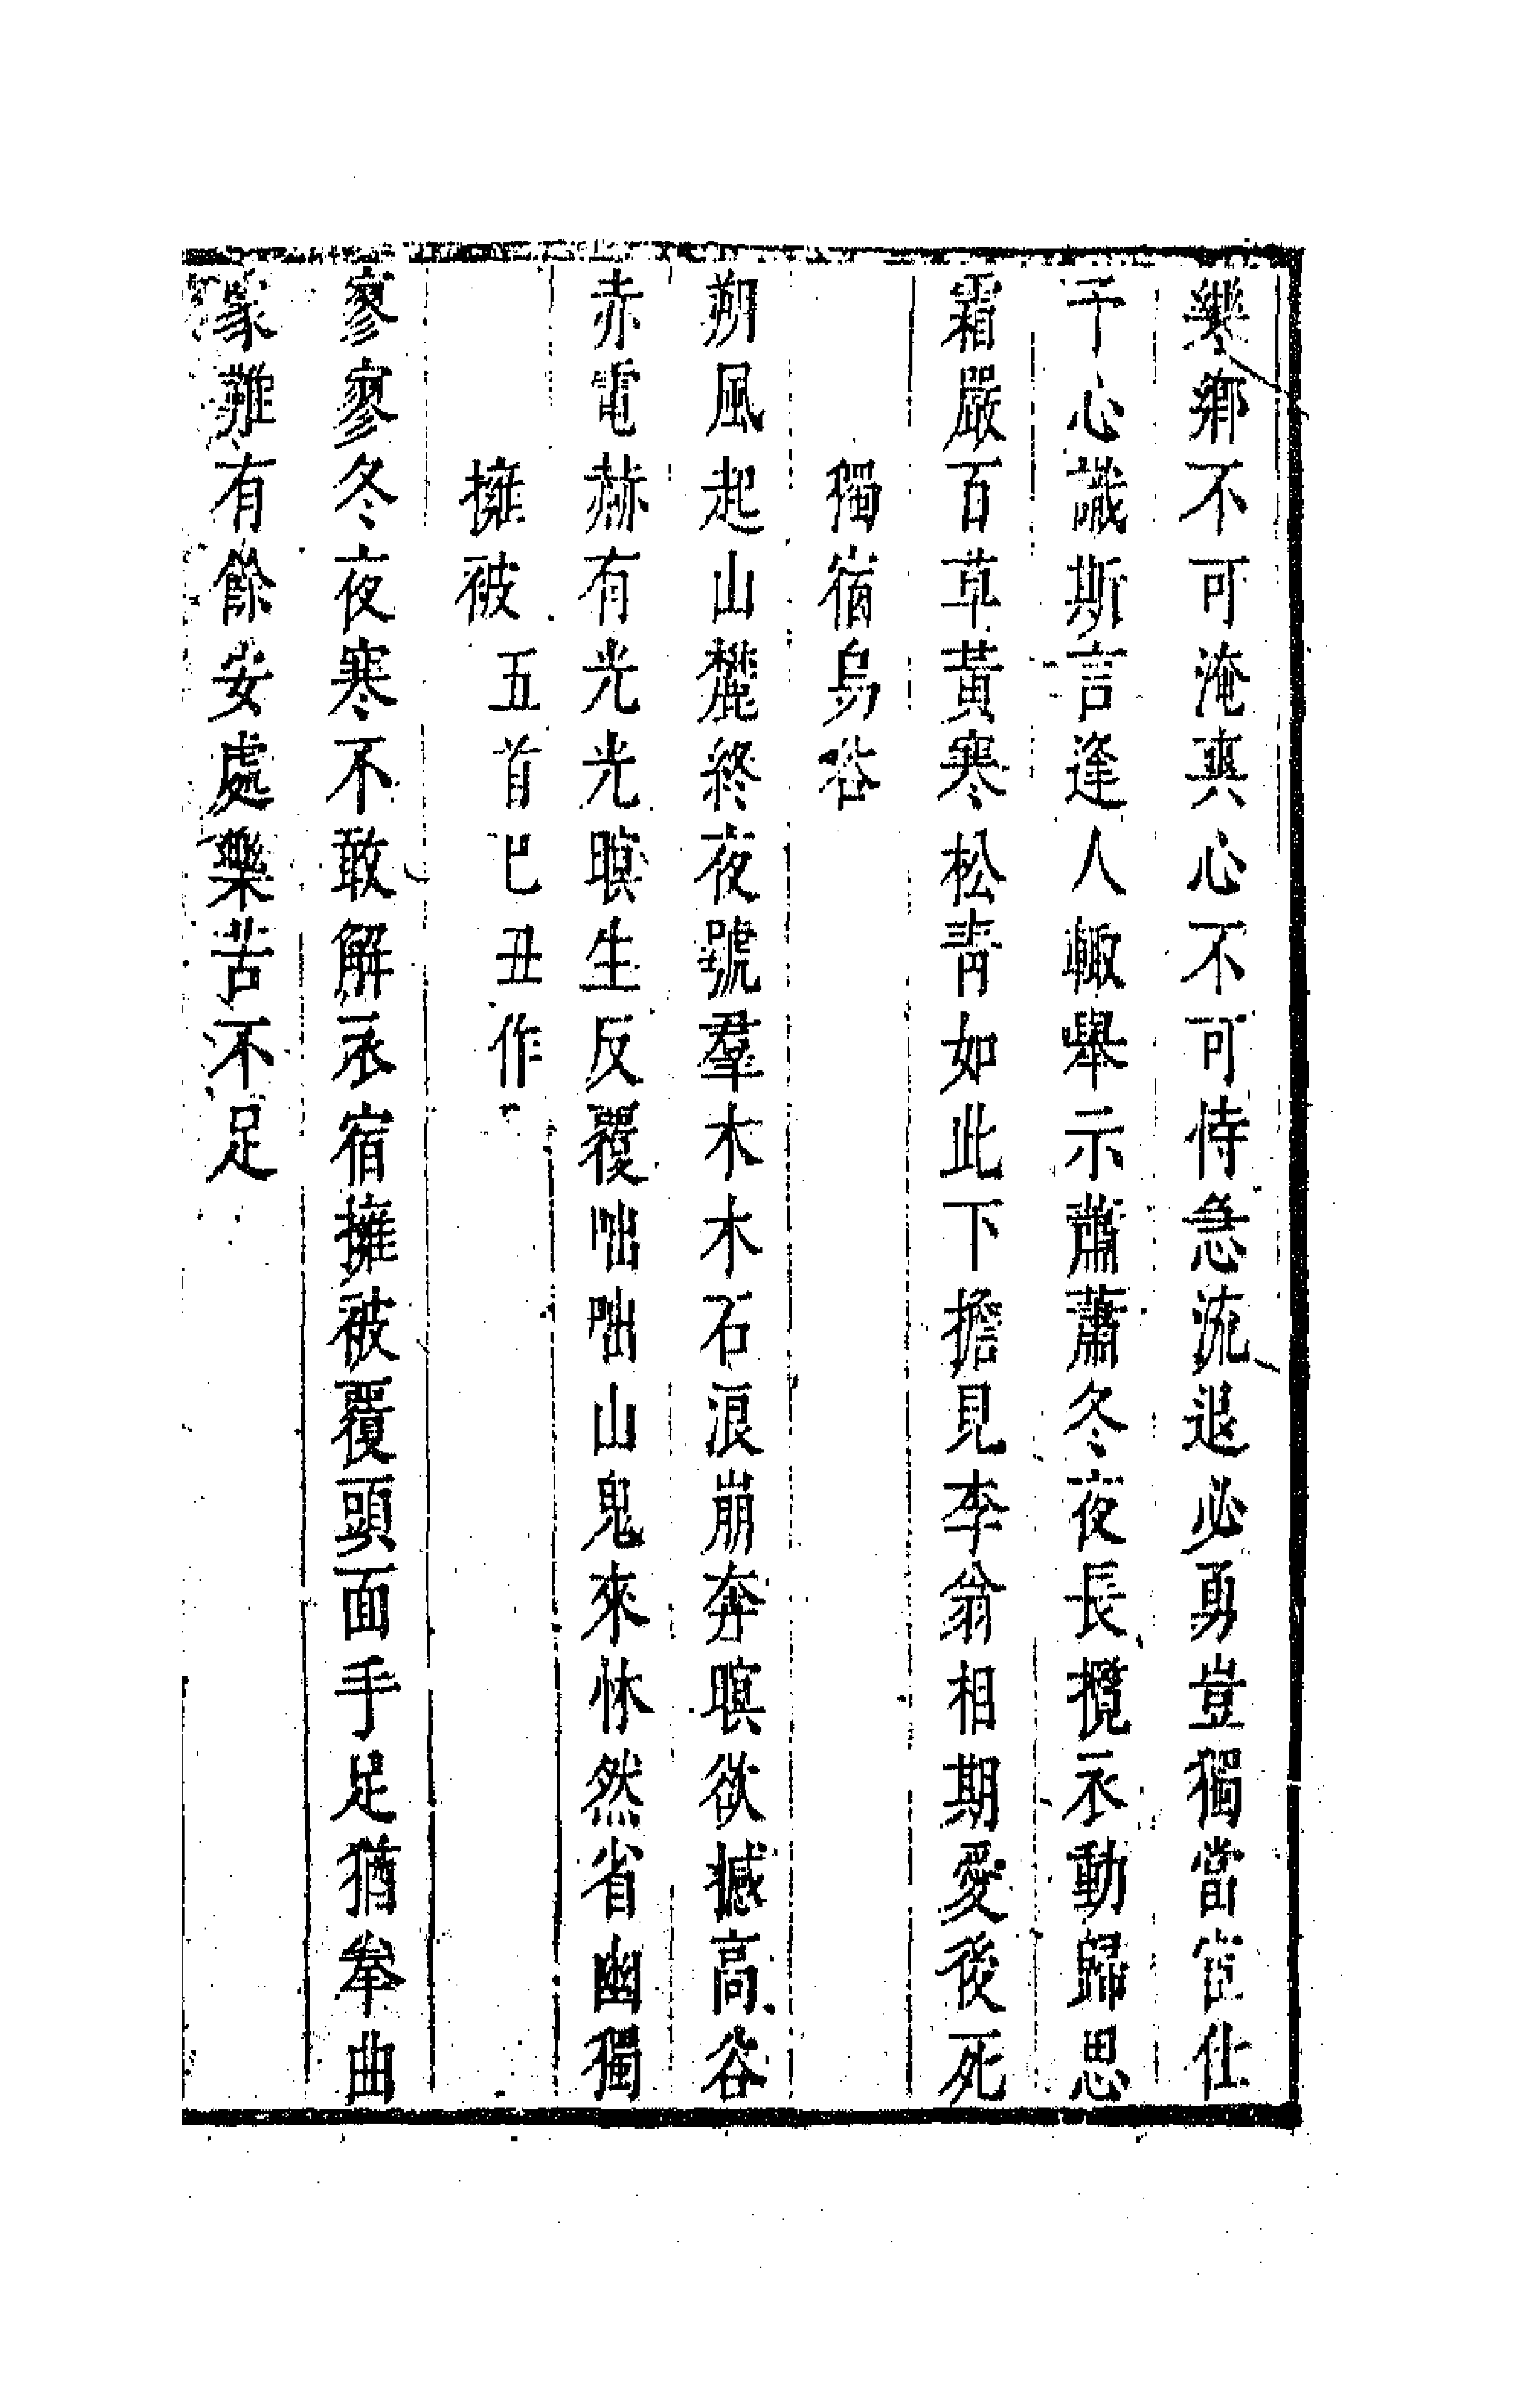 樂鄉不可淹爽心不可恃急流退必勇豈獨當宦仕
千心識斯言逢人輙舉示蕭蕭冬夜長攬衣動歸思
霜嚴百草黃寒松青如此下擔見李翁相期愛後死
獨宿烏谷
朔風起山麓終夜號羣木木石浪崩奔暝欲撼高谷
赤電赫有光光暝生反覆咄咄山鬼來怵然省幽獨
擁被五首己丑作
寥寥冬夜寒不敢解衣宿擁被覆頭面手足猶拳曲
蒙難有餘安處樂苦不足